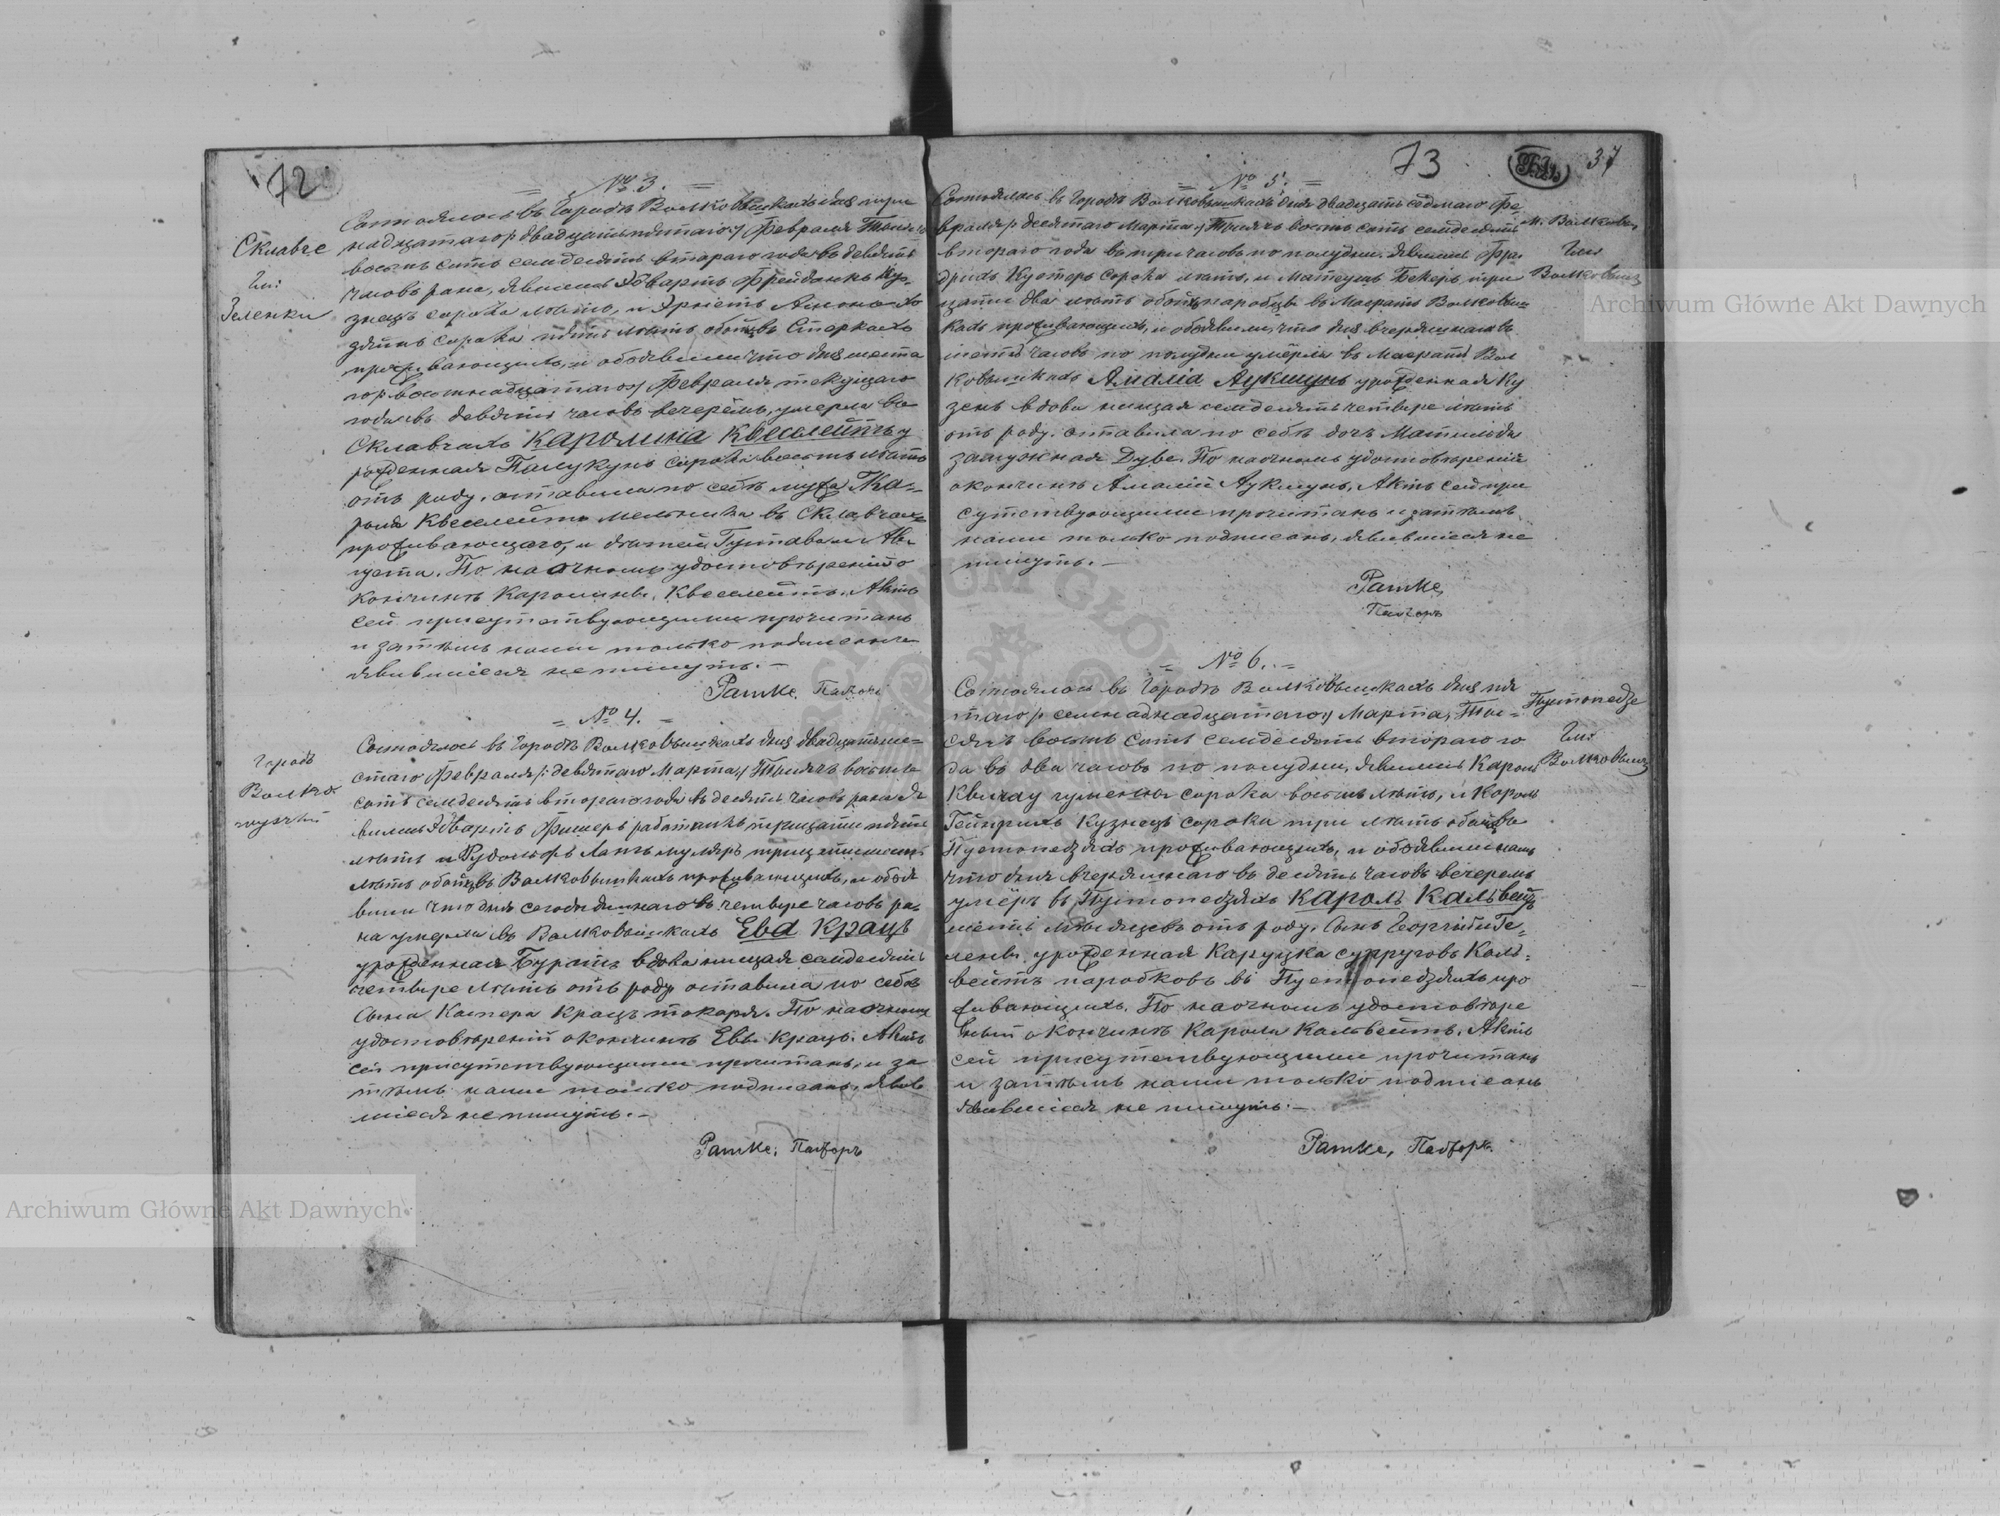 72
№ 3.
Склавче
Гм:
Зеленки
Состоялось въ Городѣ Волковышкахъ дня три
надцатаго /: двадцать пятаго :/ Февраля Тысяча
восемь сотъ семдесятъ втораго года въ девять
часовъ рана, явились Эдвартъ Фрейданкъ Ку-
знецъ сорока лѣтъ, и Эрнстъ
сорока пять лѣтъ обоихъ въ
проживающихъ, и объявили что дня шеста
го /: восемнадцатаго :/ Февраля текущаго
года въ девять часовъ вечеромъ, умерла въ
Склавчахъ Каролина Квесслейтъ у
рожденная Палукунъ сорока восемь лѣтъ
отъ роду, оставила по себѣ мужа Ка-
роля Квесслейтъ Мельника въ Склавчахъ
проживающаго, и дѣтей Густава и Ав-
густа. По наочномъ удостовѣреніи о
кончинѣ Каролины Квесслейтъ, Актъ
сей присутствующими прочитанъ
и затѣмъ нами только подписанъ
явившіеся не пишутъ. —
Ратке, Пасторъ
№ 4.
Городъ
Волко
вышкій
Состоялось въ Городѣ Волковышкахъ дня двадцать ше-
стаго Февраля /: девятаго Марта :/ Тысяча восемь
сотъ семдесятъ втораго года въ десять часовъ рана я
вились Эдвартъ Фишеръ работникъ тридцати пять
лѣтъ и Рудольфъ Лапъ муляръ тридцати шесть
лѣтъ обоихъ въ Волковышкахъ проживающихъ, и объя
вили что дня сегодняшнаго въ четыре часовъ ра-
на умерла въ Волковышкахъ Ева Крацъ
урожденная Буратъ вдова нищая семдесятъ
четыре лѣтъ отъ роду оставила по себѣ
сына Каспера Крацъ токаря. По наочномъ
удостовѣреніи о кончинѣ Евы Крацъ, Актъ
сей присутствующими прочитанъ, и за
тѣмъ нами только подписанъ, явив
шіеся не пишутъ. —
Ратке, Пасторъ
73
37
№ 5.
м. Волковы
Гм:
Волковышк
Состоялось въ Городѣ Волковышкахъ дня двадцать седмаго Фе-
враля /: десятаго Марта :/ Тысяча восемь сотъ семдесятъ
втораго года въ три часовъ по полудни. Явились Фри
дрихъ Кустеръ сорока лѣтъ, и Матеушъ Бекеръ три
цати два лѣтъ обоихъ паробцы въ Маератѣ Волковыш-
кахъ проживающихъ, и объявили, что дня вчерашнаго въ
шесть часовъ по полудни умерла въ Маератѣ Вол
ковышкахъ Амалія Аукшунъ урожденная Ку
зенъ вдова нищая семдесятъ четыре лѣтъ
отъ роду, оставила по себѣ дочь Матильда
замужная Дуве. По наочномъ удостовѣреніи
о кончинѣ Амаліи Аукшунъ, Актъ сей при
сутствующими прочитанъ и затѣмъ
нами только подписанъ, явившіеся не
пишутъ. —
Ратке,
Пасторъ
№ 6.
Пустопедзе
Гм:
Волковышк
Состоялось въ Городѣ Волковышкахъ дня пя
таго /: семнаднадцатаго :/ Марта, Тыс-
сячъ восемь сотъ семдесятъ втораго го
да въ два часовъ по полудни, явились Кароль
Квилау гуменны сорока восемь лѣтъ, и Кароль
Гейнрихъ Кузнецъ сорока три лѣтъ обоихъ въ
Пустопедзяхъ проживающихъ, и объявили намъ
что дня вчерашнаго въ десять часовъ вечеромъ
умеръ въ Пустопедзяхъ Кароль Кальвейтъ
шесть мѣсяцевъ отъ роду, Сынъ Георгія и Ге-
лены урожденная Каруцка супруговъ Каль-
вейтъ паробковъ въ Пустопедзяхъ про
живающихъ. По наочномъ удостовѣре
ніи о кончинѣ Кароля Кальвейтъ, Актъ
сей присутствующими прочитанъ
и затѣмъ нами только подписанъ
явившіеся не пишутъ. —
Ратке, Пасторъ
Archiwum Główne Akt Dawnych
Archiwum Główne Akt Dawnych